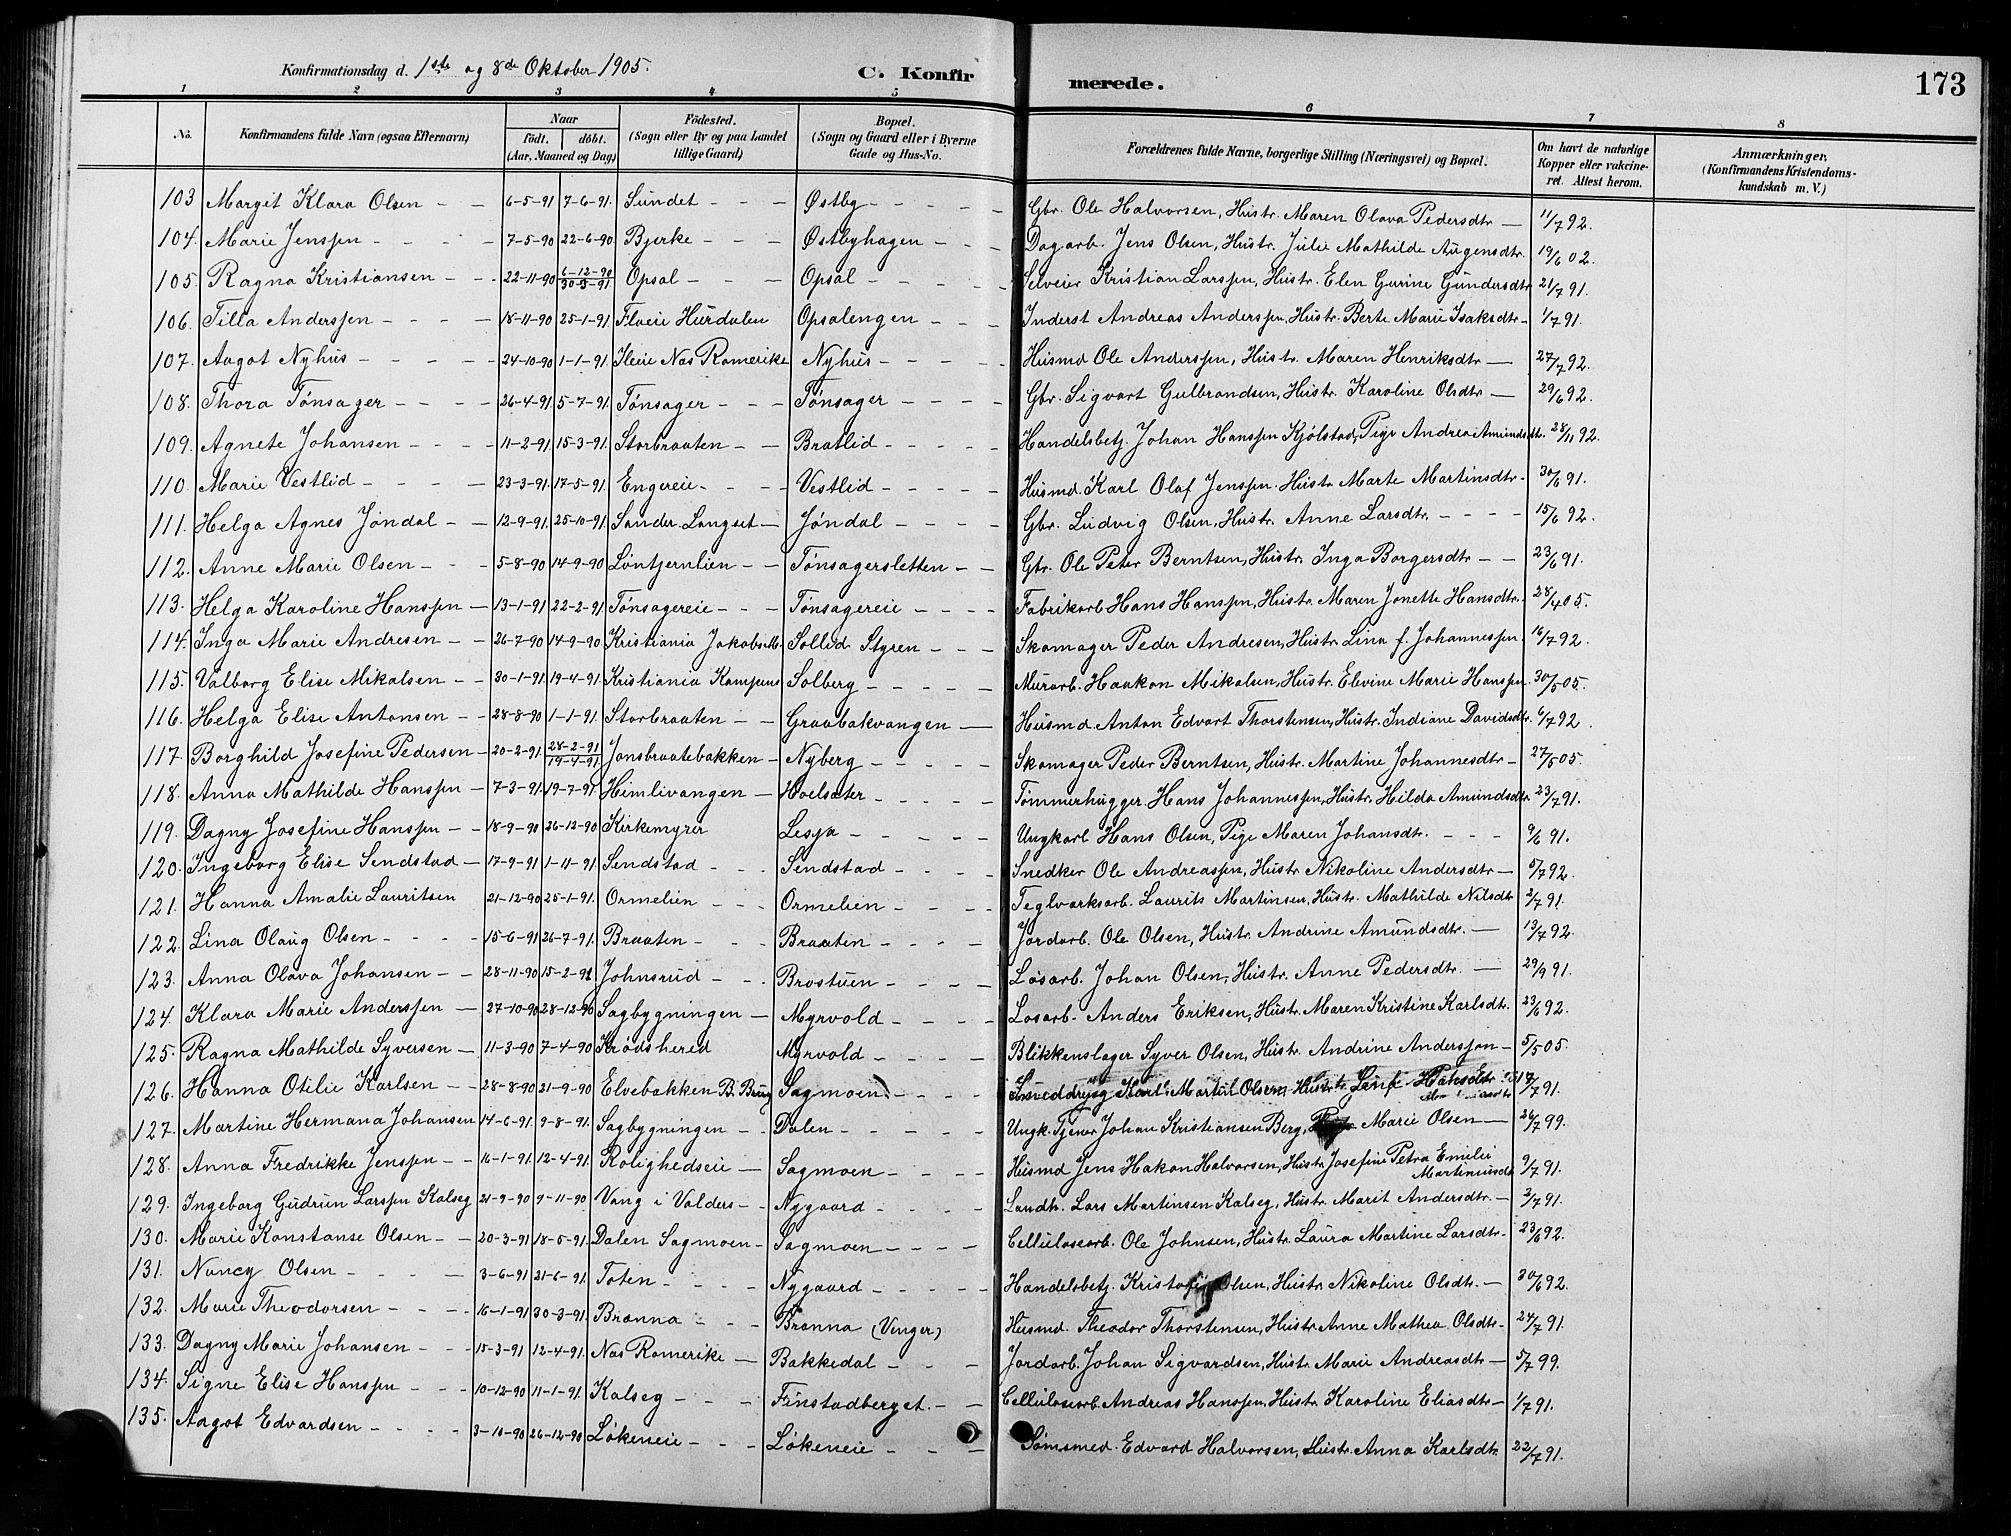 Konfirmationsdag d. 1ste og 8de Oktober 1905.
C. Konfirmerede.
173
1 2 3 4 5 6 7 8
No. Konfirmandens fulde Navn (ogsaa Efternavn) Naar födt. döbt. (Aar, Maaned og Dag) Födested. (Sogn eller By og paa Landet tillige Gaard) Bopæl. (Sogn og Gaard eller i Byerne Gade og Hus-No. Forældrenes fulde Navne, borgerlige Stilling (Næringsvei) og Bopæl. Om havt de naturlige Kopper eller vakcineret. Attest herom. Anmærkninger. (Konfirmandens Kristendomskundskab m. V.)
103 Margit Klara Olsen 6-5-91 7-6-91. Sundet Østby Gbr. Ole Halvorsen, Hustr. Maren Olava Pedersdtr 11/7 92.
104. Marie Jenssen 7-5-90 22-6-90 Bjerke Østbyhagen Dagarb. Jens Olsen, Hustr. Julie Mathilde Augensdtr. 19/6 02.
105. Ragna Kristiansen 22-11-90 6-12-90 30-3-91 Opsal Opsal Selveier Kristian Larssen, Hustr. Elen Gurine Gundersdtr 21/7 91.
106. Tilla Anderssen 18-11-90 25-1-91 Flaeie Hurdalen Opsalengen Inderst Andreas Anderssen, Hustr. Berte Marie Isaksdtr 1/7 91.
107. Aagot Nyhus 24-10-90 1-1-91. Ileie Nes Romerike Nyhus Husmd Ole Anderssen, Hustr. Maren Henriksdtr 27/7 92.
108. Thora Tönsager 26-4-91. 5-7-91. Tönsager Tönsager Gbr. Sigvart Gulbrandsen, Hustr. Karoline Olsdtr 29/6 92.
109. Agnete Johansen 11-2-91 15-3-91. Storbraaten Bratlid Handelsbetj. Johan Hanssen Kjölstad, Pige Andrea Amundsdtr. 28/11 92.
110. Marie Vestlid 23-3-91. 17-5-91. Engereie Vestlid Husmd. Karl Olaf Jenssen. Hustr. Marte Martinsdtr 30/6 91.
111. Helga Agnes Jöndal 12-9-91. 25-10-91. Sander. Langset Jöndal Gbr. Ludvig Olsen, Hustr. Anne Larsdtr. 15/6 92.
112. Anne Marie Olsen 5-8-90 14-9-90 Löntjernlien Tönsagersletten Gbr. Ole Peter Berntsen, Hustr. Inga Borgersdtr 23/6 91.
113. Helga Karoline Hanssen 13-1-91 22-2-91 Tönsagereie Tönsagereie Fabrikarb Hans Hanssen, Hustr. Maren Jonette Hansdtr. 28/4 05.
114. Inga Marie Andresen 26-7-90 14-9-90 Kristiania Jakobs M. Sollid Styren Skomager Peder Andresen, Hustr. Lina f. Johannessen 16/7 92.
115. Valborg Elise Mikalsen 30-1-91. 19-4-91. Kristiania Kampens Solberg Murarb. Haakon Mikalsen, Hustr. Elevine Marie Hanssen. 30/5 05.
116. Helga Elise Antonsen 28-8-90 1-1-91. Storbraaten Graabakvangen Husmd. Anton Edvart Thorstensen, Hustr. Indiane Davidsdtr. 6/7 92.
117. Borghild Josefine Pedersen 20-2-91. 28-2-91 19-4-91. Jonsbraatebakken Nyberg Skomager Peder Berntsen, Hustr. Martine Johannesdtr 27/5 05.
118. Anna Mathilde Hanssen 7-3-91. 19-7-91. Himlivangen Hoelsæter Tømmerhugger Hans Johannessen, Hustr. Hilda Amundsdtr 23/7 91.
119. Dagny Josefine Hanssen 18-9-90 26-12-90 Kirkemyrer Lesja Ungkarl Hans Olsen, Pige Maren Johansdtr. 9/6 91.
120. Ingeborg Elise Sendstad 17-9-91 1-11-91. Sendstad Sendstad Snedker Ole Andreassen, Hustr. Nikoline Andersdtr 5/7 92.
121. Hanna Amalie Lauritsen 21-12-90 25-1-91. Ormelien Ormelien Teglværksarb. Laurits Martinsen, Hustr. Mathilde Nilsdtr 2/7 91.
122 Lina Olaug Olsen 15-6-91 26-7-91. Braaten Braaten Jordarb. Ole Olsen, Hustr. Andrine Amundsdtr. 13/7 92.
123. Anna Olava Johansen 28-11-90 15-2-91 Johnsrud Brostuen Løsarb. Johan Olsen, Hustr. Anne Pedersdtr. 29/9 91.
124. Klara Marie Anderssen 27-10-90 28-12-90 Sagbygningen Myrvold Løsarb. Anders Eriksen, Hustr. Maren Kristine Karlsdtr. 23/6 92.
125. Ragna Mathilde Syversen 11-3-90 7-4-90 Krödshered Myrvold Blikkenslager Syver Olsen, Hustr. Andrine Anderssen 5/5 05.
126. Hanna Otilie Karlsen 28-8-90 21-9-90 Elvebakken B. Brug Sagmoen Smeddreng Karl Martin Olsen, Hustr. /7 91.
127. Martine Hermana Johansen 14-6-91. 9-8-91. Sagbygningen Dalen Ungk. Tjener Johan Kristiansen Berg, Marie Olsen 26/7 99.
128. Anna Fredrikke Jenssen 16-1-91. 12-4-91. Rolighedseie Sagmoen Husmd Jens Hakon Halvorsen, Hustr. Josefine Petra Emilie Martiniusdtr 9/7 91.
129. Ingeborg Gudrun Larssen Kalseg 21-9-90 9-11-90 Vang i Valders Nygaard Landh. Lars Martinsen Kalseg, Hustr. Marit Andersdtr. 2/7 91.
130. Marie Konstanse Olsen 20-3-91 18-5-91. Dalen Sagmoen Sagmoen Celluloscarb. Ole Johnsen, Hustr. Laura Martine Larsdtr. 23/6 92.
131. Nancy Olsen 3-6-91 21-6-91. Toten Nygaard Handelsbetj. Kristoffer Olsen, Hustr. Nikoline Olsdtr. 30/6 92.
132. Marie Theodorsen 16-1-91 30-3-91 Brønna Brønna (Vinger) Husmd. Theodor Thorstensen, Hustr. Anne Mathea Olsdtr. 24/7 91.
133. Dagny Marie Johansen 15-3-91 12-4-91. Nes Romerike Bakkedal Jordarb. Johan Sigvardsen, Hustr. Marie Andreasdtr 5/7 99.
134. Signe Elise Hanssen 10-12-90 11-1-91. Kalseg Finstadberget. Cellulosearb. Andreas Hanssen, Hustr. Karoline Eliasdtr 1/7 91.
135. Aagot Edvardsen 3-10-90 26-12-90 Løkeneie Løkeneie Sömsmed. Edvard Halvorsen, Hustr. Anna Karlsdtr. 22/7 91.